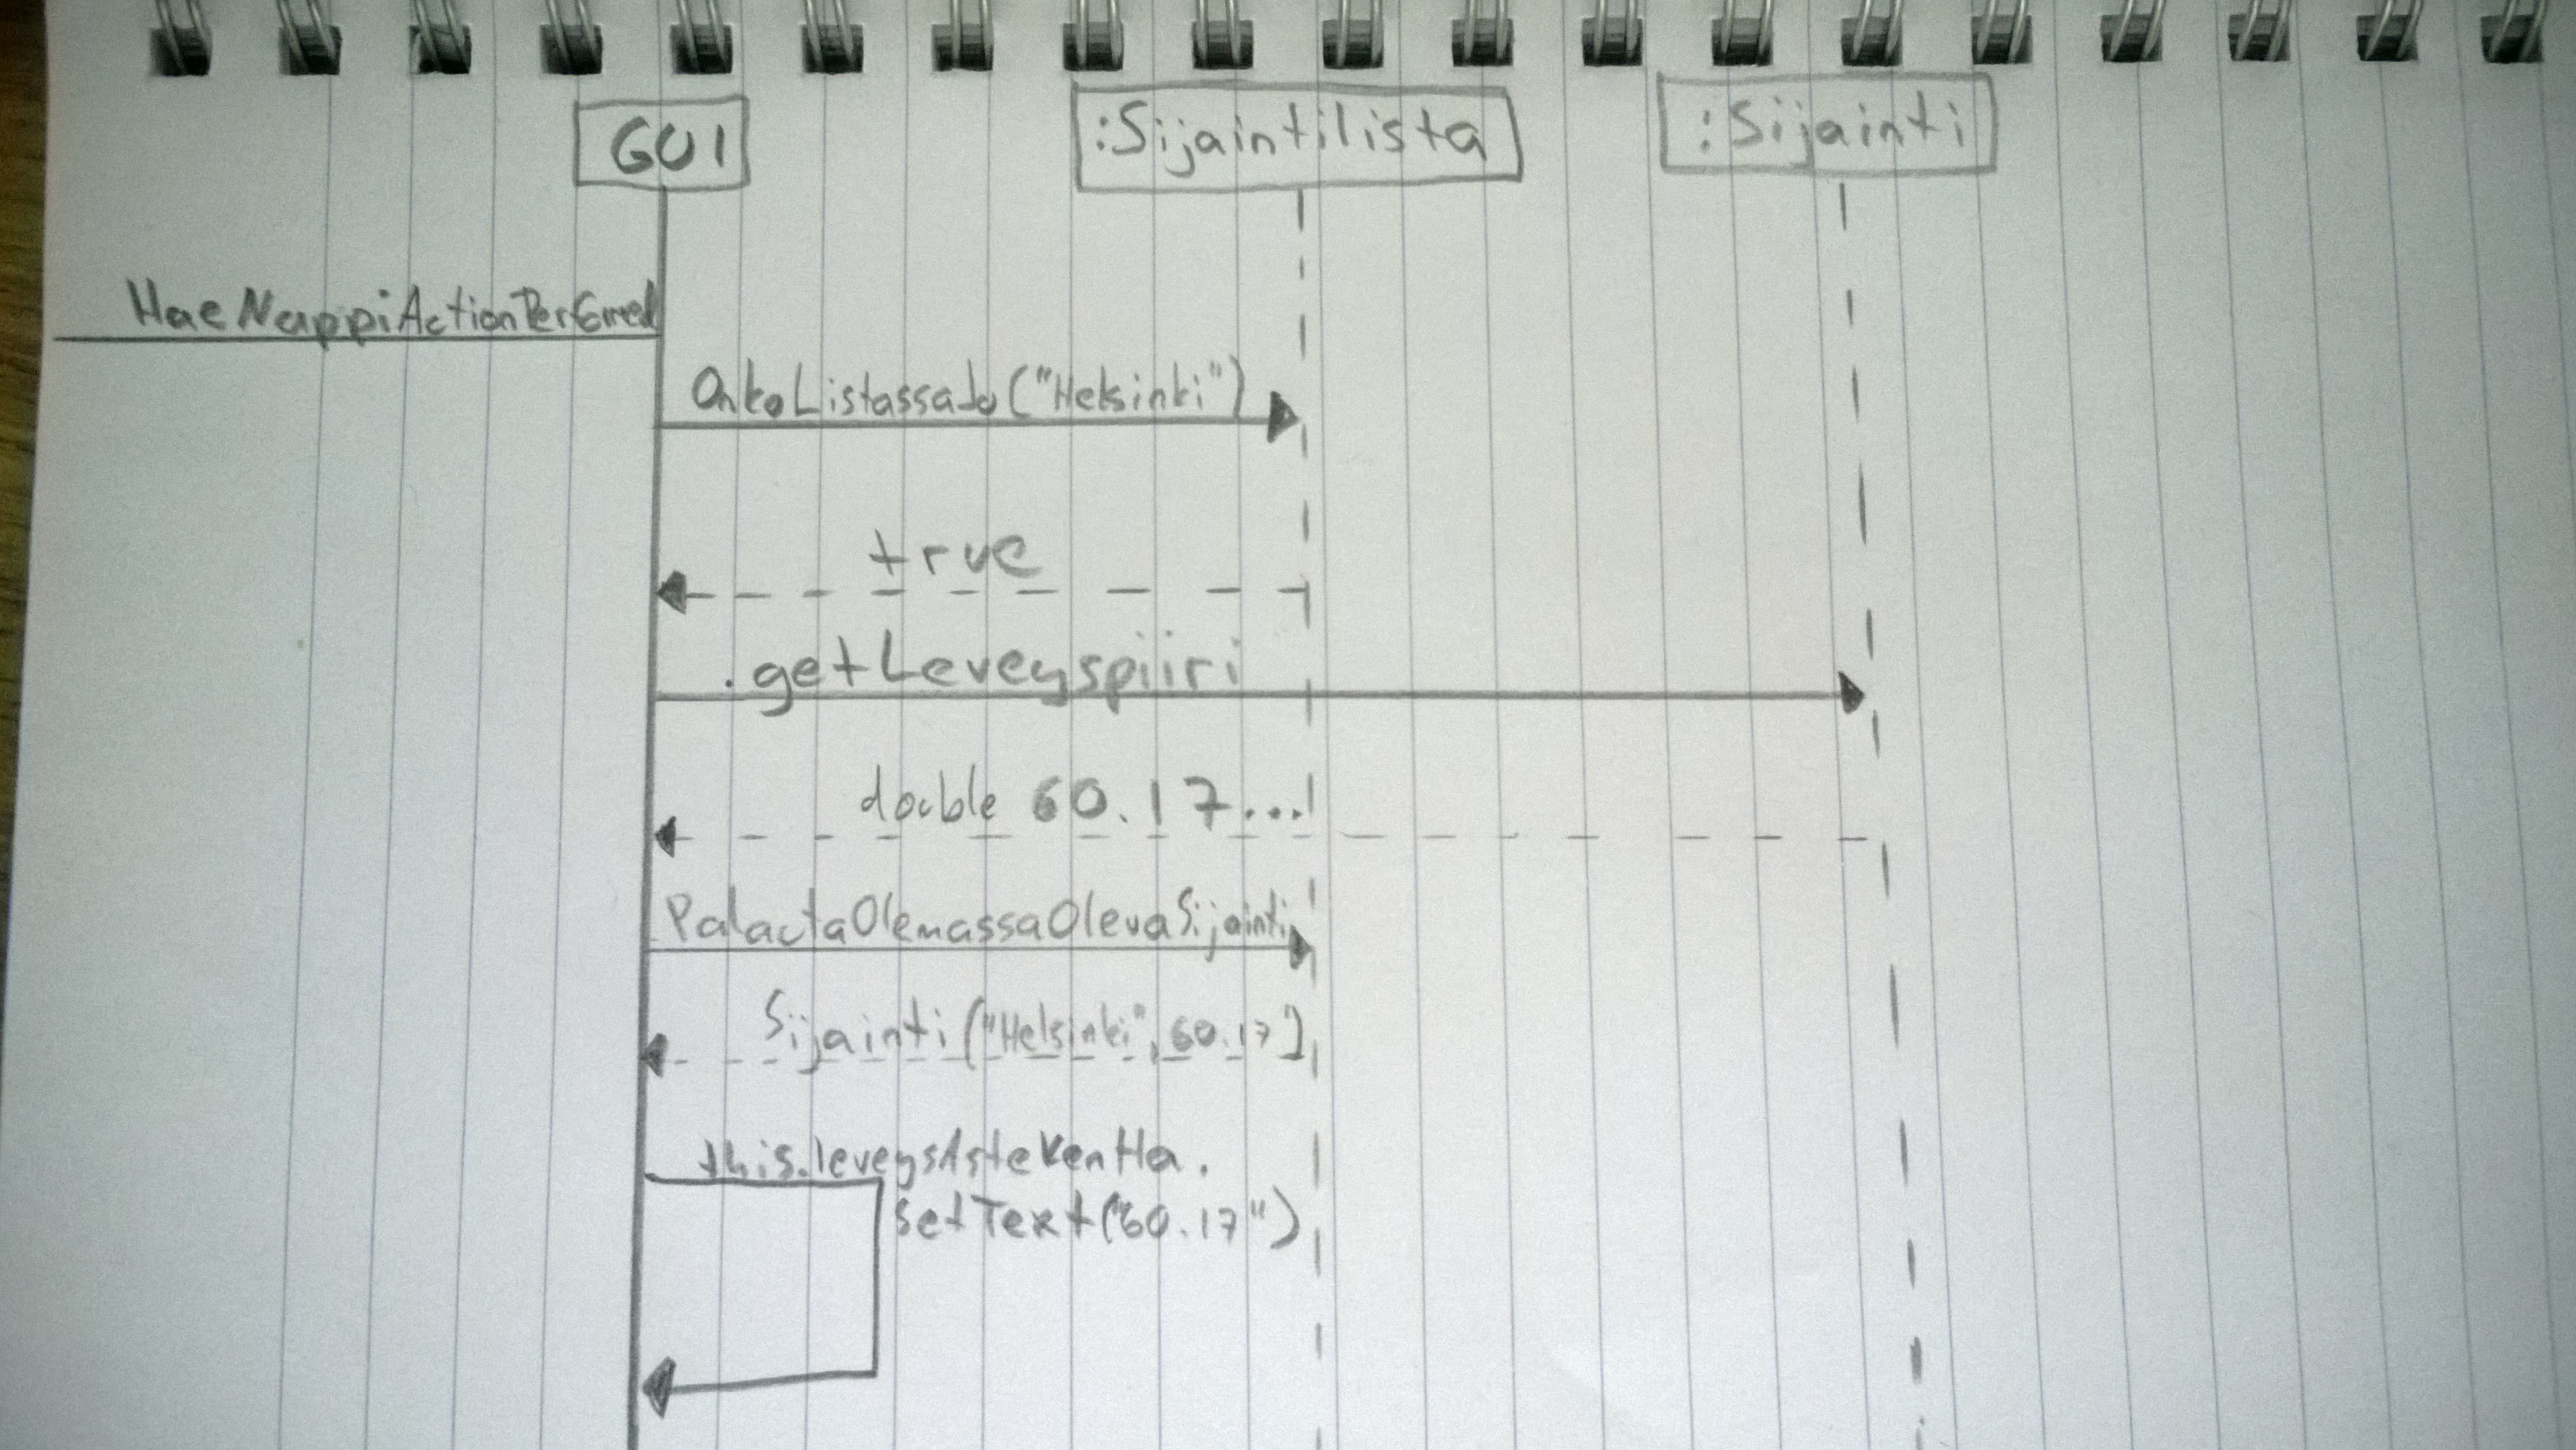 GUI
:Sijaintilista
:Sijainti
HaeNappiActionPerformed
OnkoListassaJo("Helsinki")
true
.getLeveyspiiri
double 60.17...
PalautaOlemassaOlevaSijainti
Sijainti("Helsinki", 60.17)
this.leveysAsteKentta.
setText("60.17")